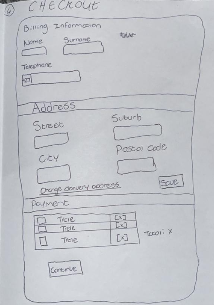 CHECKOUT
Billing Information
Name Surname
Telephone
Address
Street Suburb
City Postal Code
Change delivery address
Save
Payment
Title [x]
Title [x]
Title [x]
Total: x
Continue